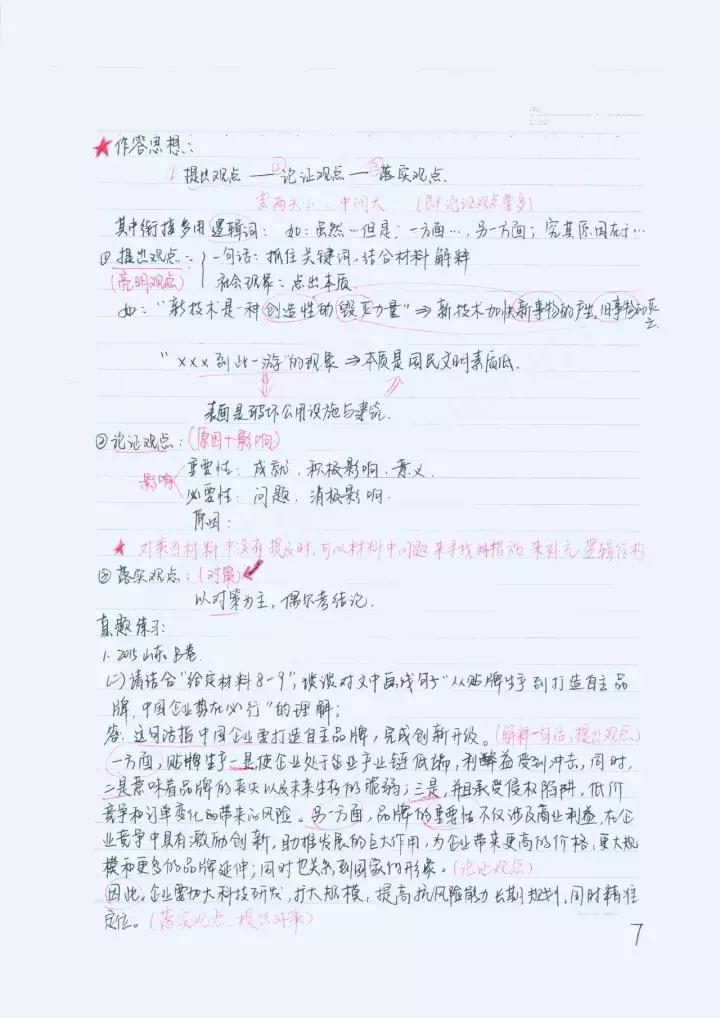 ★作答思想:
①提出观点 —②论证观点 —③落实观点.
富两头小、中间大 (即论证观点要多)
其中衔接多用逻辑词: 如: 虽然…但是; 一方面…, 另一方面; 究其原因在于…
①提出观点: 一句话: 抓住关键词, 结合材料解释
(亮明观点) 社会现象: 点出本质.
如: "新技术是一种创造性的毁灭力量" ⇒ 新技术加快新事物的产生, 旧事物的灭亡
"×××到此一游"的现象 ⇒ 本质是国民文明素质低.
表面是破坏公用设施与建筑.
②论证观点: (原因+影响)
影响 重要性: 成就、积极影响、意义.
必要性: 问题、消极影响.
原因:
★ 对策当材料中没有提及时, 可以材料中问题来寻找对措施来补充逻辑结构
③落实观点: (对策)
以对策为主, 偶尔考结论.
真题练习:
1. 2015山东B卷.
(二)请结合"给定材料8-9", 谈谈对文中画线句子"从贴牌生产到打造自主品
牌, 中国企业势在必行"的理解;
答: 这句话指中国企业要打造自主品牌, 完成创新升级。(解释一句话, 提出观点)
一方面, 贴牌生产一是使企业处于企业产业链低端, 利酬益受到冲击, 同时,
二是意味着品牌的丧失以及未来生存的脆弱; 三是, 并且承受侵权陷阱, 低价
竞争和订单变化的带来的风险。另一方面, 品牌的重要性不仅涉及商业利益, 在企
业竞争中具有激励创新, 助推发展的巨大作用, 为企业带来更高的价格, 更大规
模和更多的品牌延伸; 同时也关系到国家的形象。(论证观点)
因此, 企业要加大科技研发, 扩大规模, 提高抗风险能力长期规划, 同时精准
定位。(落实观点、提出对策)
7